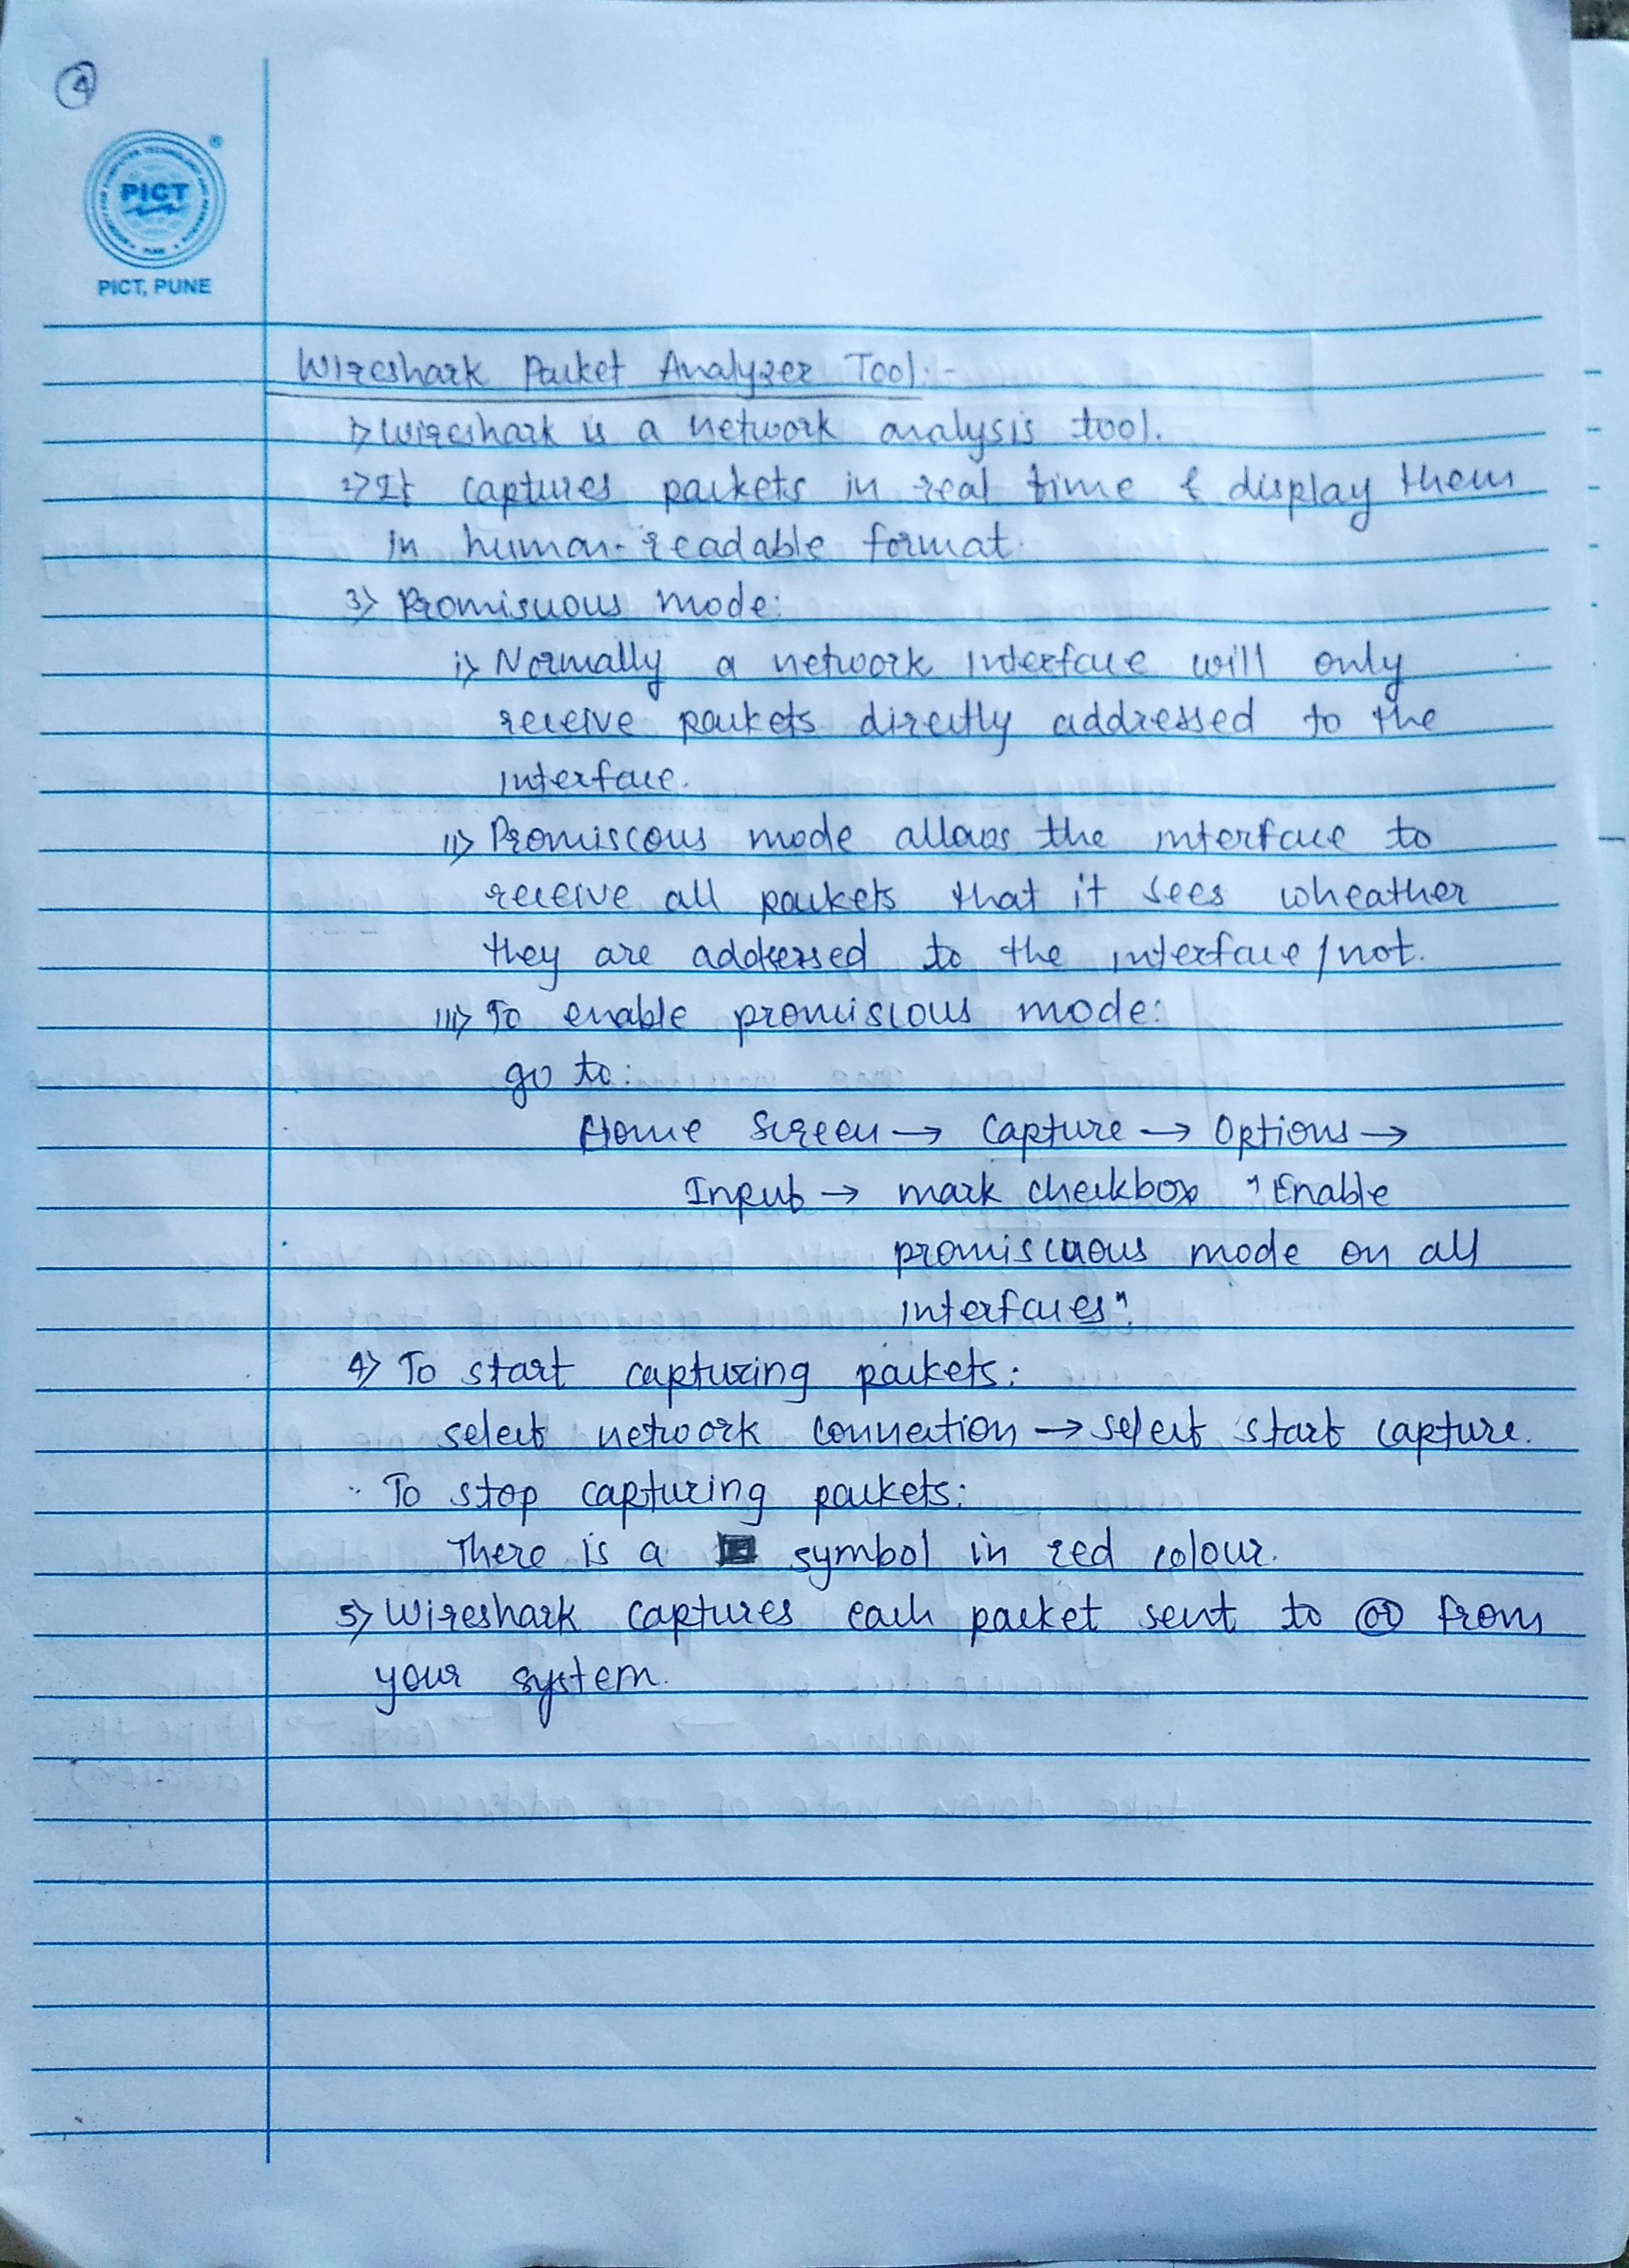 4
PICT
PICT, PUNE
Wireshark Packet Analyzer Tool:-
1> Wireshark is a network analysis tool.
2> It captures packets in real time & display them
in human-readable format.
3> Promisuous mode:
i> Normally a network interface will only
receive packets directly addressed to the
interface.
ii> Promiscous mode allows the interface to
receive all packets that it sees wheather
they are addressed to the interface/not.
iii> To enable promiscious mode:
go to:
Home Screen → Capture → Options →
Input → mark checkbox "Enable
promiscuous mode on all
interfaces".
4> To start capturing packets:
select network connection → select start capture.
To stop capturing packets:
There is a symbol in red colour.
5> Wireshark captures each packet sent to or from
your system.